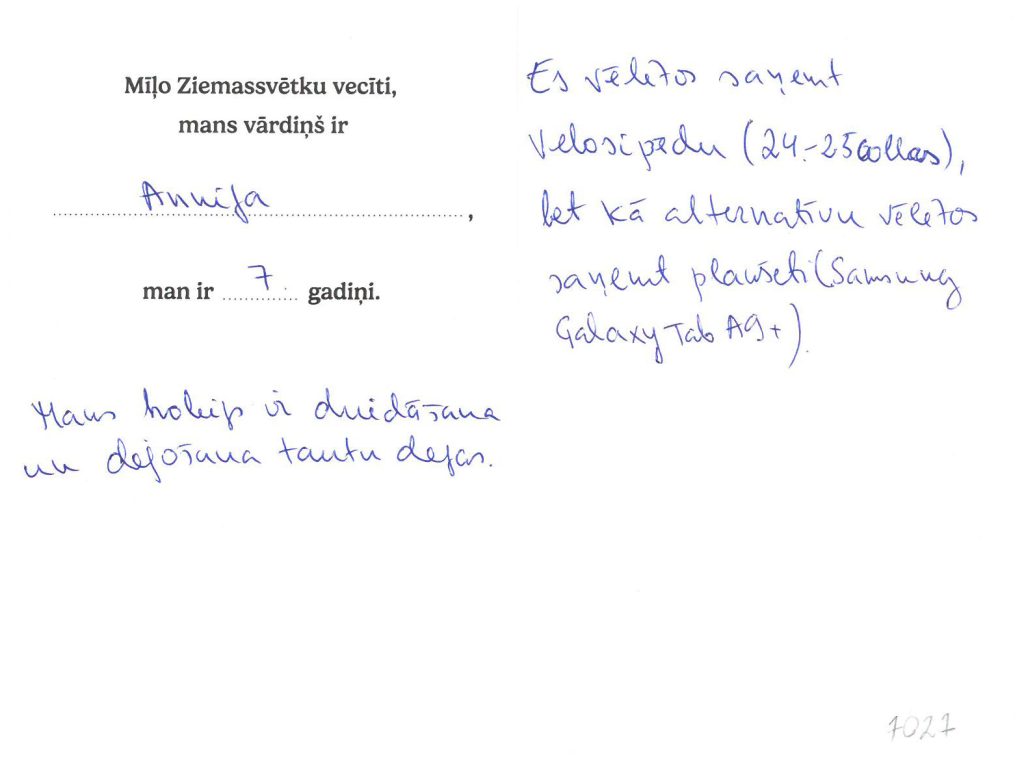 Mīļo Ziemassvētku vecīti,
mans vārdiņš ir
Annija,
man ir 7 gadiņi.
Mans hobijs ir dziedāšana
un dejošana tautu dejas.
Es vēlētos saņemt
velosipēdu (24.-25 collas),
bet kā alternatīvu vēlētos
saņemt planšeti (Samsung
Galaxy Tab A9+).
7027